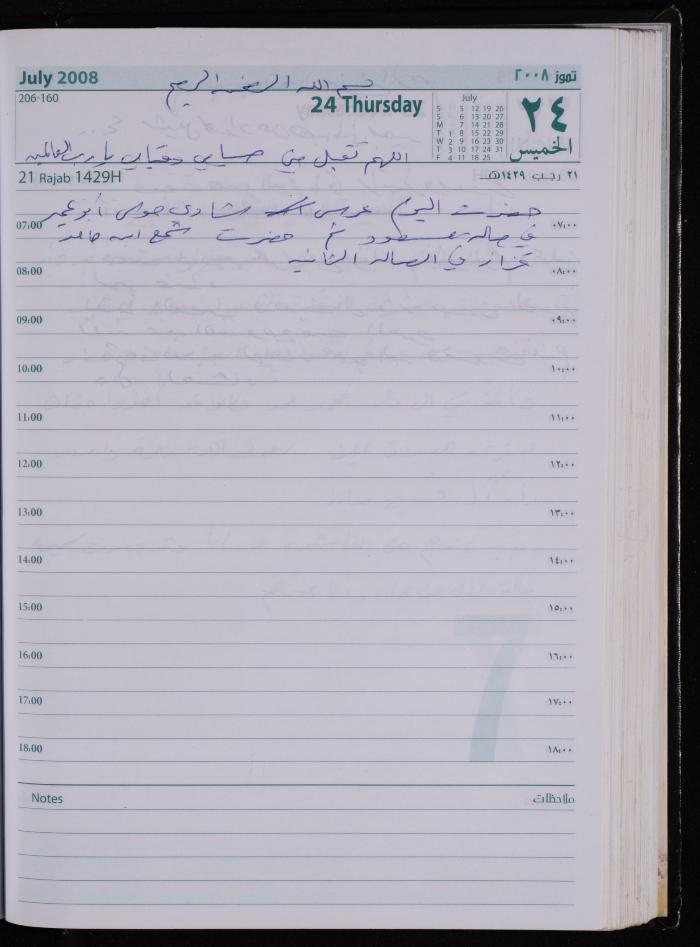 July 2008
تموز ٢٠٠٨
بسم الله الرحمن الرحيم
206-160
24 Thursday
July
S 5 12 19 26
S 6 13 20 27
M 7 14 21 28
T 1 8 15 22 29
W 2 9 16 23 30
T 3 10 17 24 31
F 4 11 18 25
٢٤
الخميس
اللهم تقبل مني صيامي وقيامي يا رب العالمين
21 Rajab 1429H
٢١ رجب ١٤٢٩هـ
حضرت اليوم عرس شادي أبو عمير
07:00 ٠٧:٠٠
في صاله ثم حضرت
08:00 ٠٨:٠٠
في الصاله الثانيه
09:00 ٠٩:٠٠
10:00 ١٠:٠٠
11:00 ١١:٠٠
12:00 ١٢:٠٠
13:00 ١٣:٠٠
14:00 ١٤:٠٠
15:00 ١٥:٠٠
16:00 ١٦:٠٠
17:00 ١٧:٠٠
18:00 ١٨:٠٠
7
Notes
ملاحظات